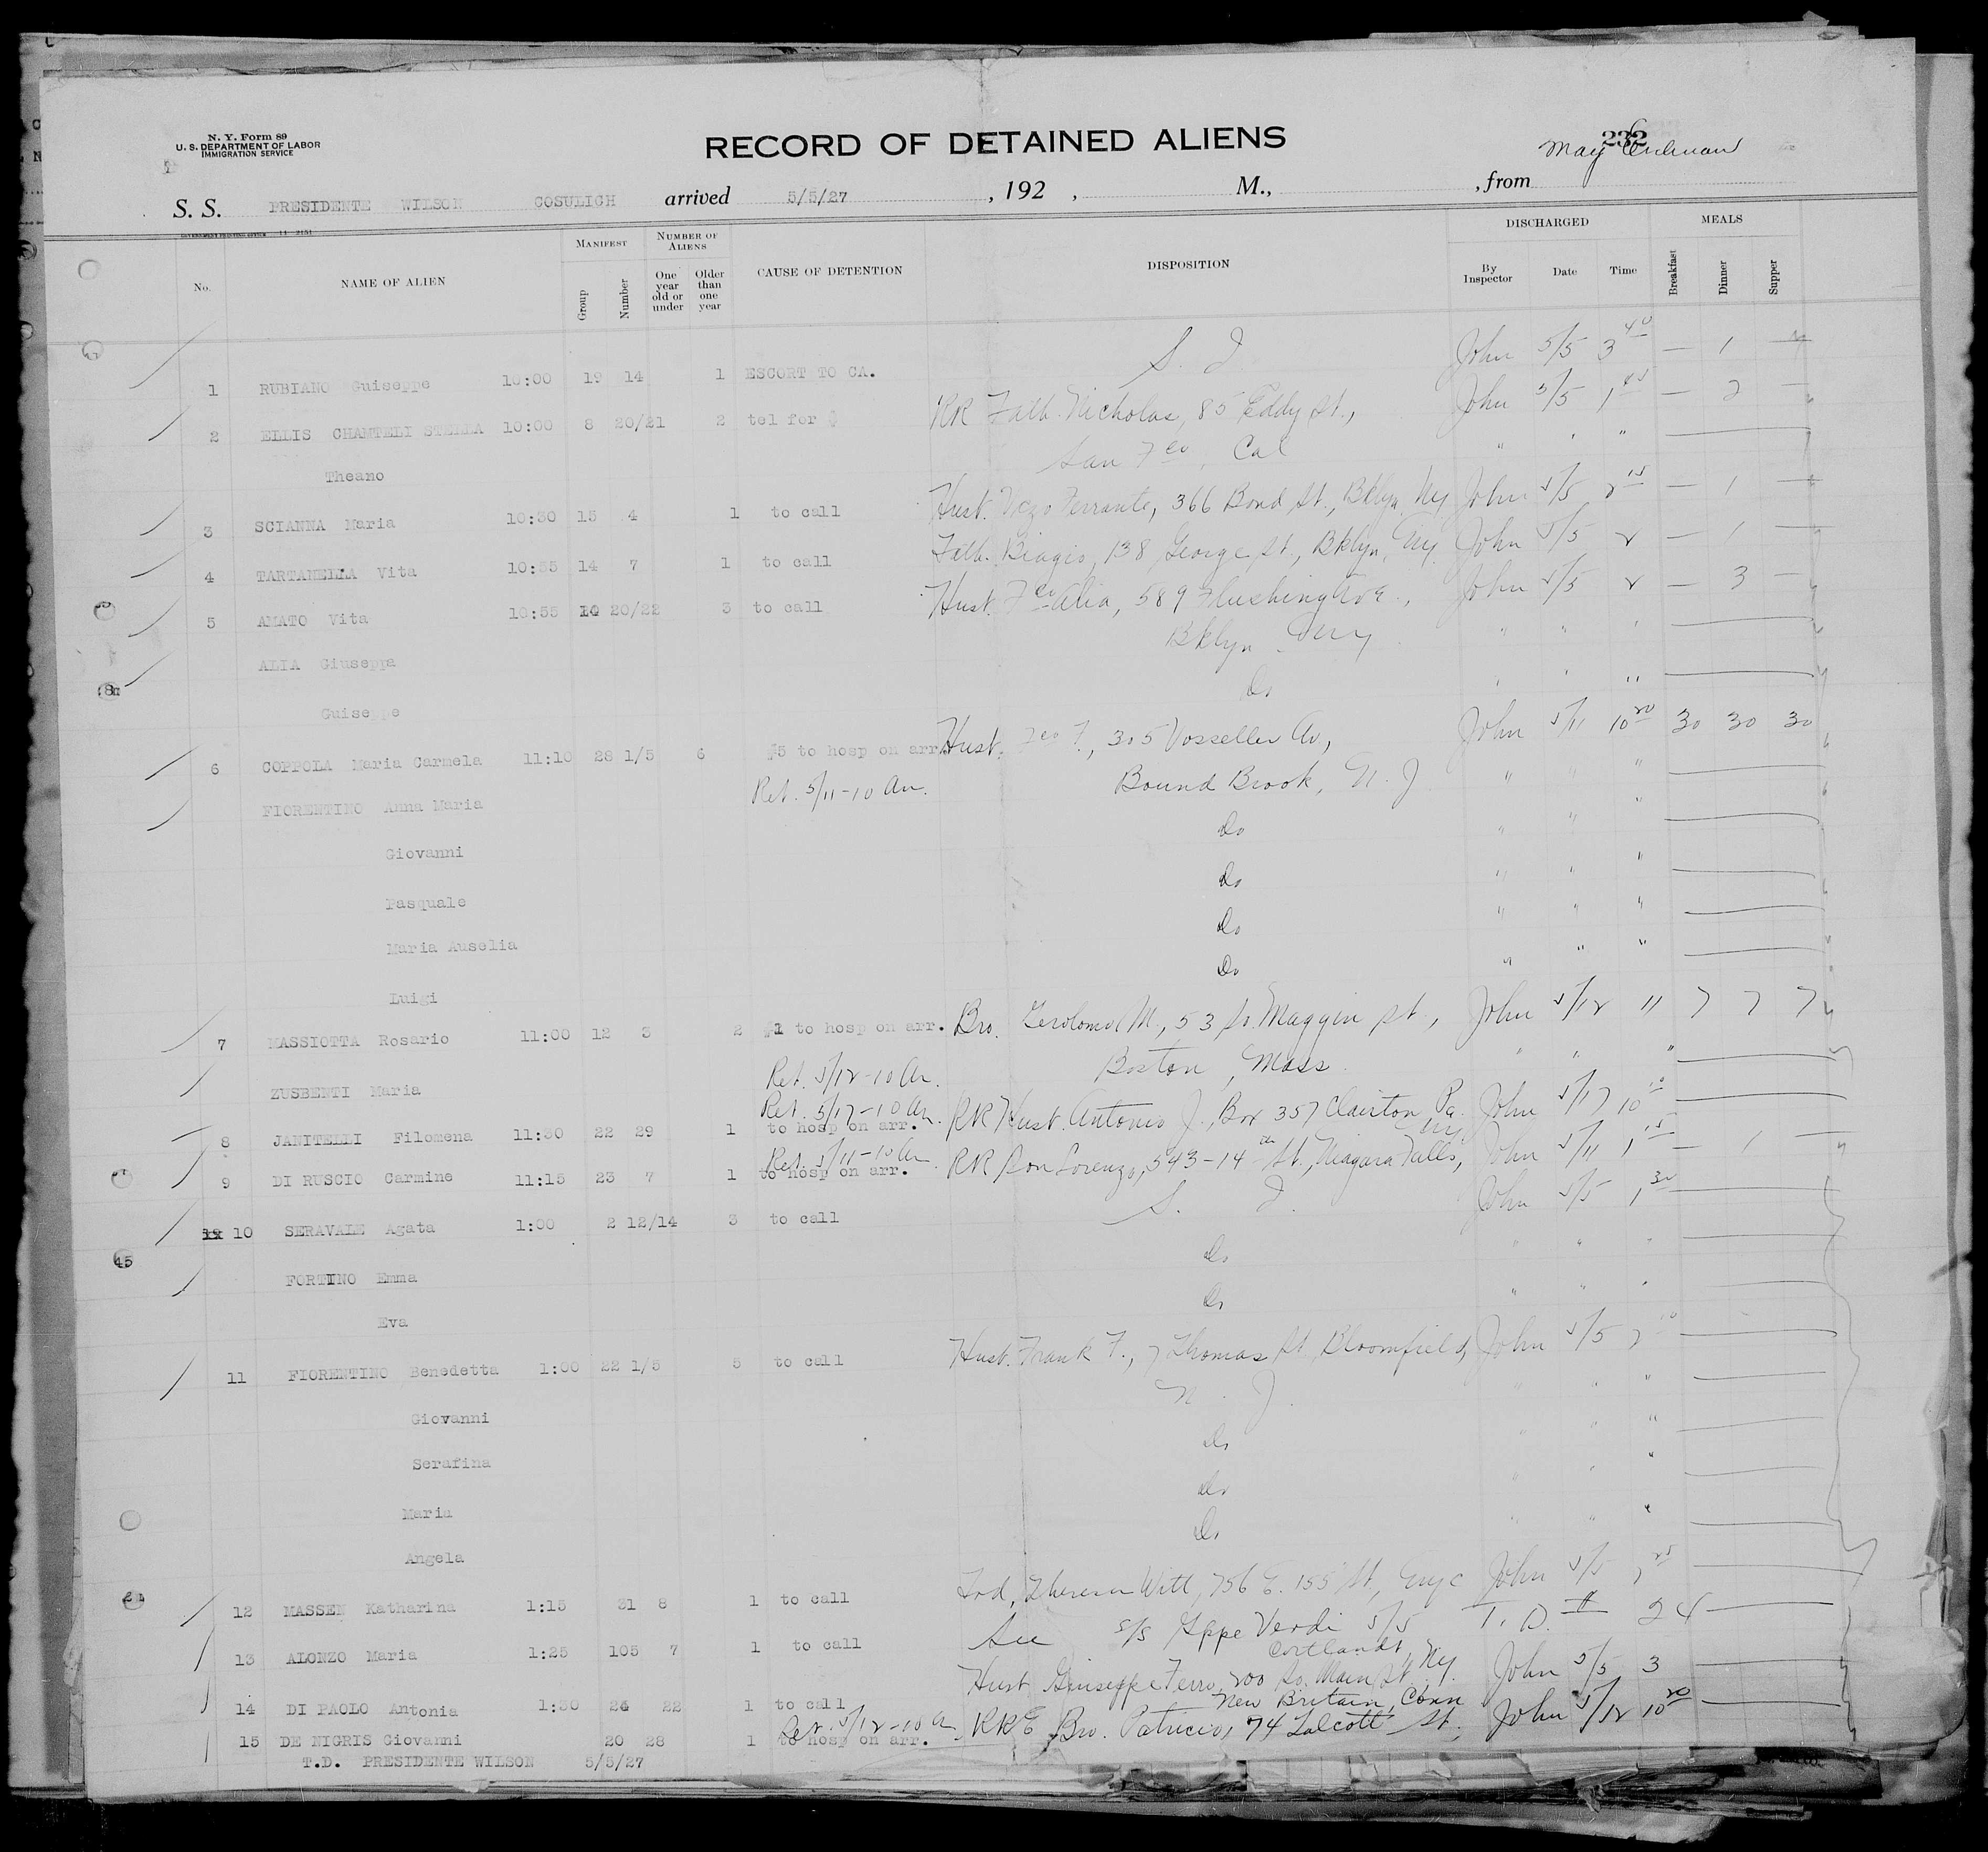 N. Y. Form 89
U. S. DEPARTMENT OF LABOR
IMMIGRATION SERVICE
RECORD OF DETAINED ALIENS
232
May
S. S. PRESIDENTE WILSON COSULICH arrived 5/5/27 , 192 , M., , from
No. NAME OF ALIEN MANIFEST Group Number NUMBER OF ALIENS One year old or under Older than one year CAUSE OF DETENTION DISPOSITION DISCHARGED By Inspector Date Time MEALS Breakfast Dinner Supper
1 RUBIANO Guiseppe 10:00 19 14 1 ESCORT TO CA. S. I John 5/5 3 40 — 1 —
2 ELLIS CHAMTELI STELLA 10:00 8 20/21 2 tel for $ RR Fath. Nicholas, 85 Eddy St., John 5/5 1 45 — 2 —
Theano San Fco, Cal " " "
3 SCIANNA Maria 10:30 15 4 1 to call Hust. Vezo Ferrante, 366 Bond St., Bklyn, Ny John 5/5 2 15 — 1 —
4 TARTANELLA Vita 10:35 14 7 1 to call Fath. Biagio, 138 George St., Bklyn, Ny. John 5/5 2 — 1 —
5 AMATO Vita 10:55 10 20/22 3 to call Hust. Fco Alia, 589 Flushing Ave., John 5/5 2 — 3 —
ALIA Giuseppa Bklyn Ny " " "
Guiseppe Do " " "
6 COPPOLA Maria Carmela 11:10 28 1/5 6 #5 to hosp on arr. Hust. F., 305 Vosseller Av, John 5/11 10 20 30 30 30
FIORENTINO Anna Maria Ret. 5/11-10 Am. Bound Brook, N. J " " "
Giovanni Do " " "
Pasquale Do " " "
Maria Auselia Do " " "
Luigi Do " " "
7 MASSIOTTA Rosario 11:00 12 3 2 #1 to hosp on arr. Bro. Gerolomo M., 53 So. Maggin St., John 5/12 11 7 7 7
ZUSBENTI Maria Ret. 5/12-10 Am. Boston, Mass. " " "
Ret. 5/17-10 Am.
8 JANITELLI Filomena 11:30 22 29 1 to hosp on arr. RR Hust. Antonio J., Box 357 Clairton, Pa. John 5/17 10 10
Ret. 5/11-10 Am
9 DI RUSCIO Carmine 11:15 23 7 1 to hosp on arr. RR Son Lorenzo, 543-14th St., Niagara Falls, Ny John 5/11 1 15 — 1 —
10 SERAVALE Agata 1:00 2 12/14 3 to call S. I. John 5/5 1 30
FORTINO Emma Do " " "
Eva Do " " "
11 FIORENTINO Benedetta 1:00 22 1/5 5 to call Hust. Frank F., 7 Thomas St Bloomfield, John 5/5 2 10
Giovanni N. J. " " "
Serafina Do " " "
Maria Do " " "
Angela Do " " "
12 MASSEN Katharina 1:15 31 8 1 to call Theresa Witt, 756 E. 155 St, Nyc John 5/5
13 ALONZO Maria 1:25 105 7 1 to call See S/S Gppe Verdi 5/5 T. D. 24
Cortlandt, Ny.
14 DI PAOLO Antonia 1:30 24 22 1 to call Hust Giuseppe Ferro, 200 So. Main St. John 5/5 3
Ret. 5/12-10 A New Britain, Conn
15 DE NIGRIS Giovanni 20 28 1 to hosp on arr. RRE Bro. Patricio, 74 Talcott St, John 5/12 10 20
T.D. PRESIDENTE WILSON 5/5/27